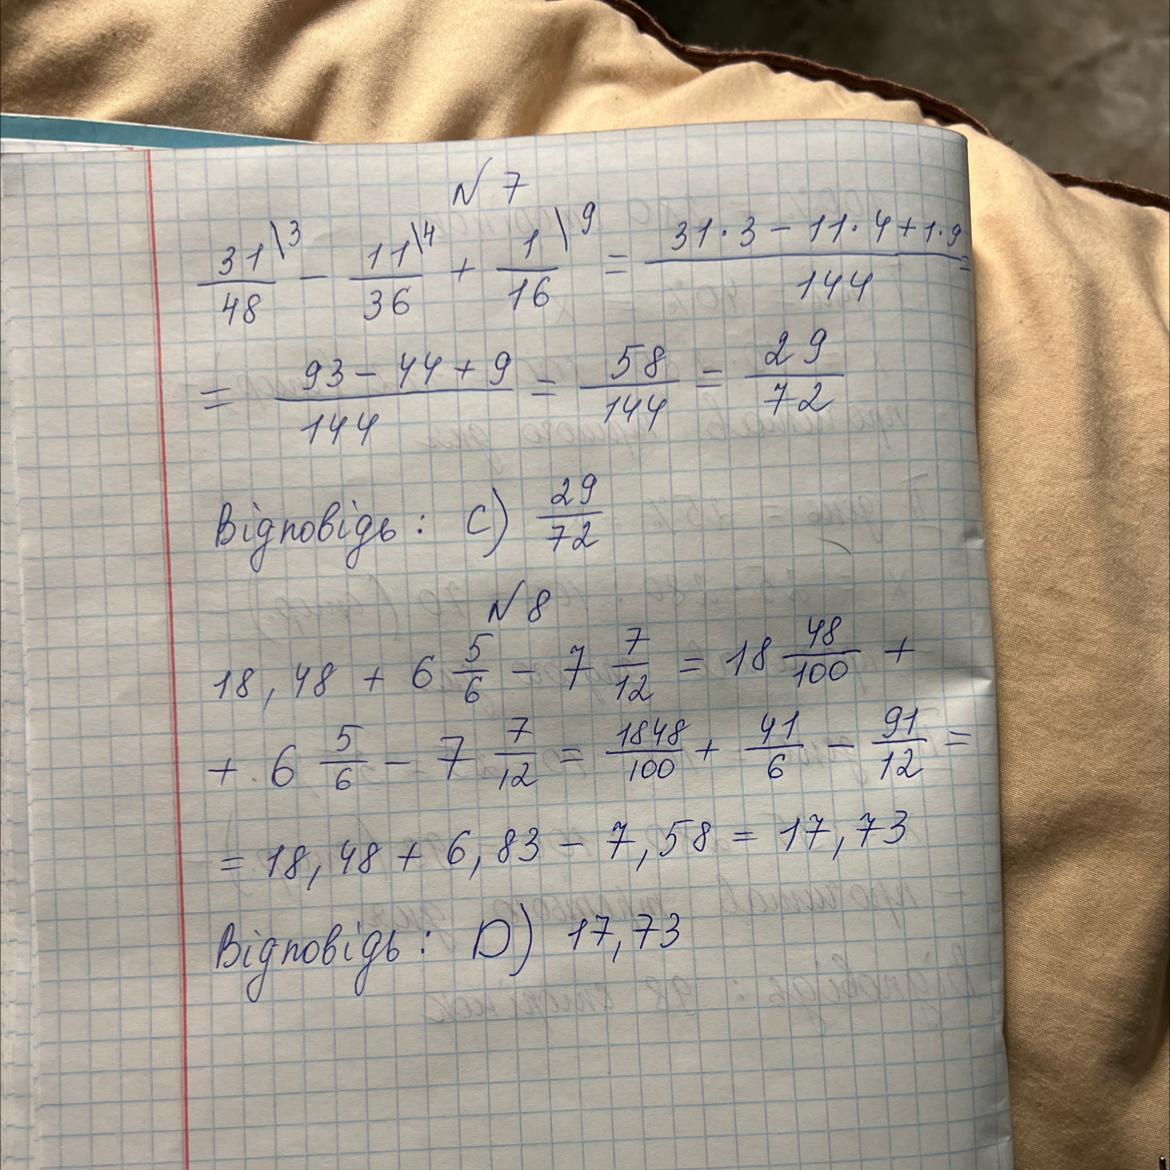 N 7
31\3/48 - 11\4/36 + 1\9/16 = 31·3-11·4+1·9/144 =
= 93-44+9/144 = 58/144 = 29/72
Відповідь: C) 29/72
N 8
18,48 + 6 5/6 - 7 7/12 = 18 48/100 +
+ 6 5/6 - 7 7/12 = 1848/100 + 41/6 - 91/12 =
= 18,48 + 6,83 - 7,58 = 17,73
Відповідь: D) 17,73